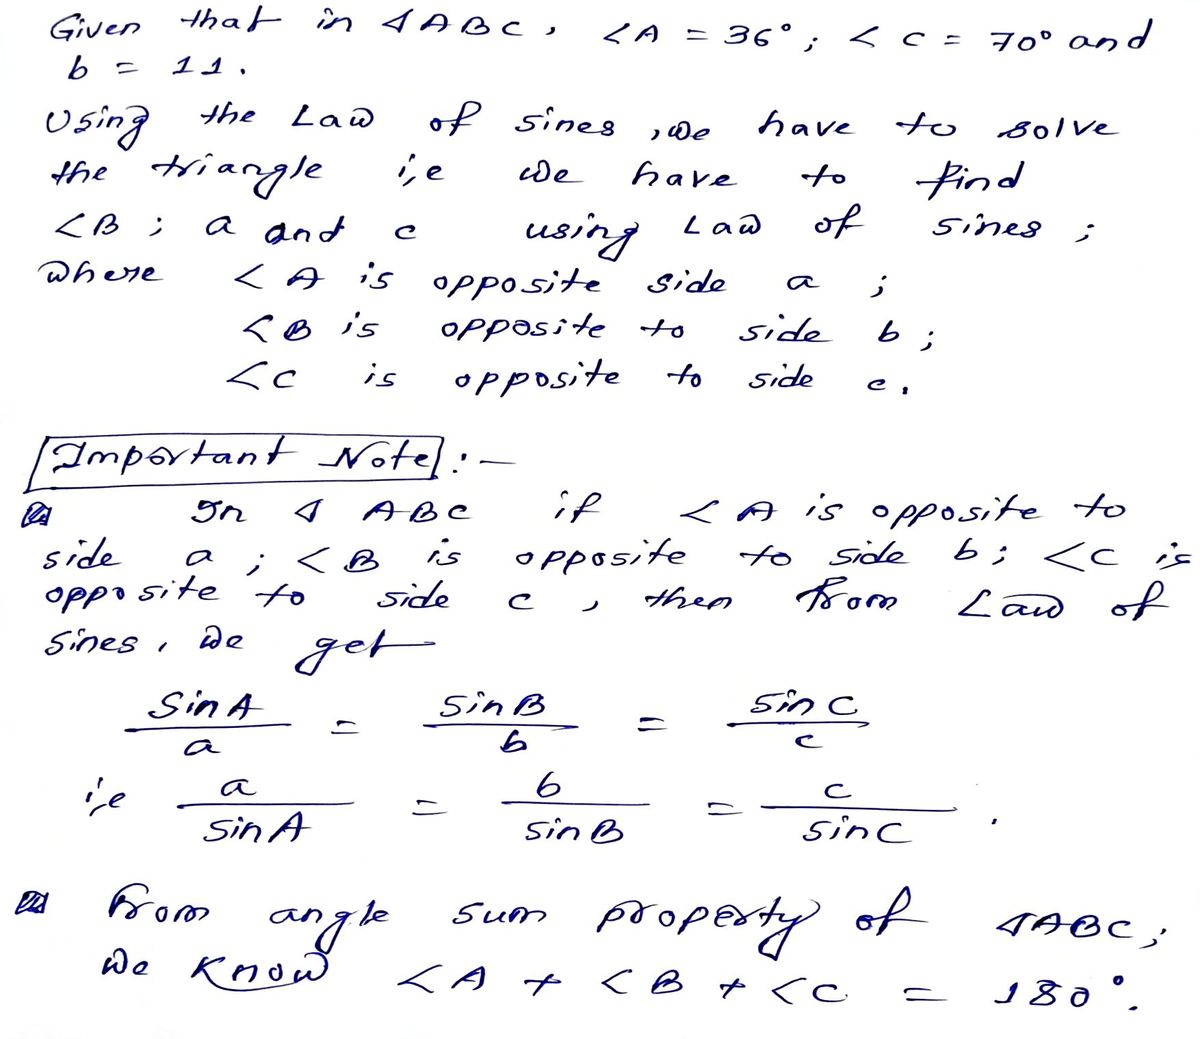 Given that in △ABC, ∠A = 36°; ∠C = 70° and
b = 11.
Using the Law of sines, we have to solve
the triangle i,e we have to find
∠B; a and c using Law of sines;
where ∠A is opposite side a;
∠B is opposite to side b;
∠C is opposite to side c.
Important Note :-
In △ ABC if ∠A is opposite to
side a; ∠B is opposite to side b; ∠C is
opposite to side c, then from Law of
sines, we get
Sin A / a = Sin B / b = Sin C / c
i,e a / Sin A = b / Sin B = c / Sin C .
From angle sum property of △ABC;
we know ∠A + ∠B + ∠C = 180°.